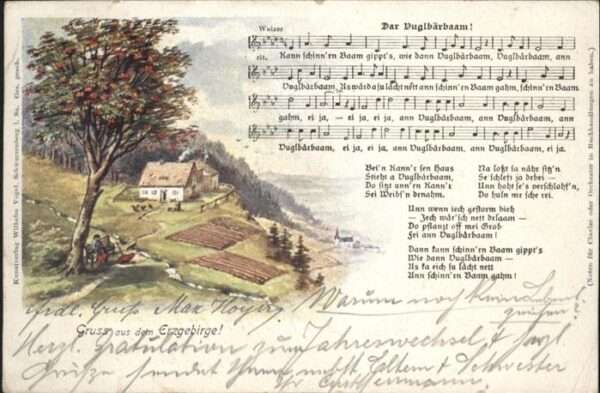 Dar Vuglbärbaam!
Walzer
Kann schinn'rn Baam gippt's, wie dann Vuglbärbaam, Vuglbärbaam, ann
Vuglbärbaam, As wärd a su lächt nett ann schinn'rn Baam gahm, schinn'rn Baam
gahm, ei ja, — ei ja, ei ja, ann Vuglbärbaam, ann Vuglbärbaam, ann
Vuglbärbaam, ei ja, ei ja, ann Vuglbärbaam, ann Vuglbärbaam, ei ja.
Bei'n Kann't sen Haus
Stieht a Vuglbärbaam,
Do sitzt unn'rn Kann't
Sei Weibs'n drnahm.
Na loßt sa näht sitz'n
Se schleft ja drbei —
Unn hoht se's verschlohf'n,
Do huln mr sche rei.
Unn wenn iech gestorm bieh
— Iech wär'sch nett drlaam —
Do pflanzt off mei Grob
Fei ann Vuglbärbaam!
Dann kann schinn'rn Baam gippt's
Wie dann Vuglbärbaam —
As ka eich su lächt nett
Ann schinn'rn Baam gahm!
Kunstverlag Wilhelm Vogel, Schwarzenberg i. Sa. Ges. gesch.
(Noten für Clavier oder Orchester in Buchhandlungen zu haben.)
Frdl. Gruß Max Hoyer. Warum noch kein
Gruss aus dem Erzgebirge!
Herzl. Gratulation zum Jahreswechsel & herzl
Grüße sendet Ihnen nebst Eltern & Schwester
Ihr Curt Herrmann.